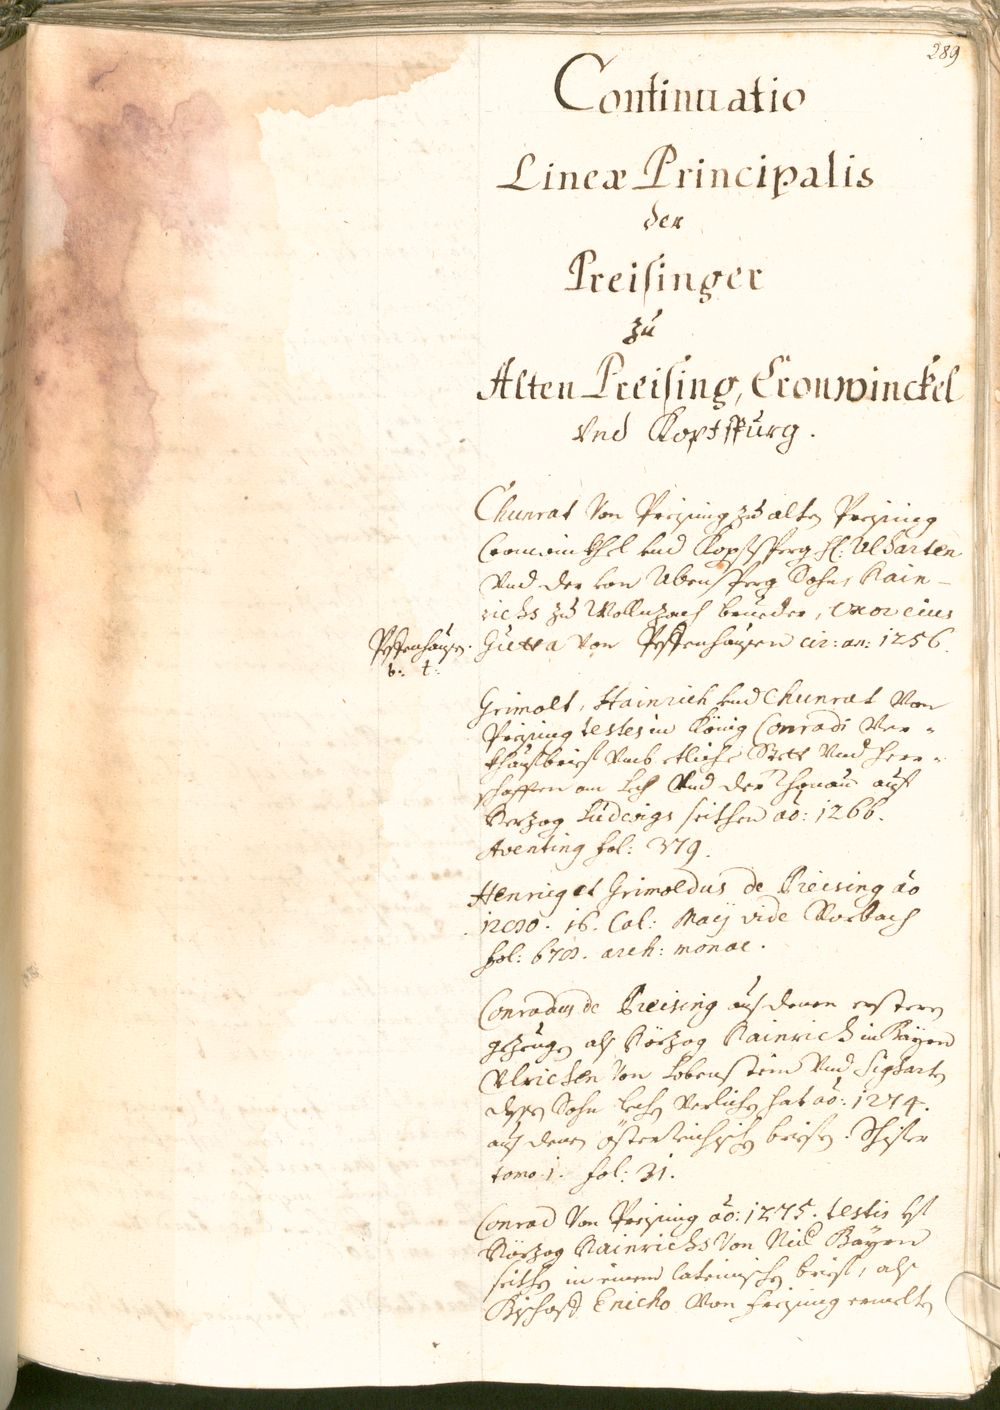 289
Continuatio
Lineæ Principalis
der
Preisinger
zu
Alten Preising, Cronwinckel
Vnd Kopfspurg.
Chunrat Von Preysing zu alten Preysing
Cronwinkhel vnd Kopfsperg H: Albarten
Vnd der von Abensperg Sohn, Hain-
richs zu Wollnzach brueder, Uxor eius
Gutta Von Pfeffenhausen cir: an: 1256.
Pfeffenhausen.
b: t:
Grimolt, Hainrich vnd Chunrat Von
Preysing testes in König Conradi Ver-
khaufbrief Vmb etliche Stett Vnd Herr-
schafften am Lech Vnd der Thonau auf
Herzog Ludwigs seithen ao: 1266.
Aventing fol: 379.
Henric9 et Grimoldus de Preising ao
1290. 16. Cal: Maij vide Rorbach
fol: 670. arch: monac.
Conradus de Preising auß denen ersteren
gezeugen als Herzog Hainrich in Bayrn
Ulrichen Von Lobenstein Vnd Sigharten
dessen Sohn lehen Verlichen hat ao: 1274.
auß denen Österreichischen briefen.
tomo 1. fol: 31.
Conrad Von Preysing ao: 1275. testis ist
Herzog Hainrichs Von Nid Bayrn
seithen in einem lateinischen brief, als
Bischoff Enicho Von Freysing ermelten